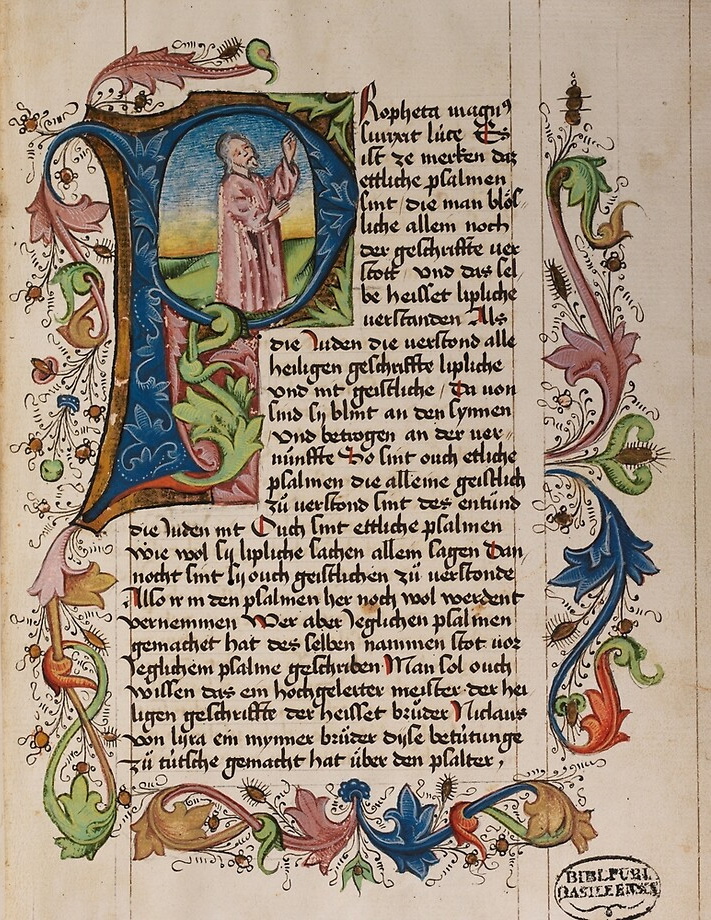 Propheta magnus
surrexit luce Es
ist ze merken daz
ettliche psalmen
sint / die man blös„
liche allein noch
der geschriffte ver
stott / vnd das sel„
be heisset lipliche
verstanden Als
die Juden die verstond alle
heiligen geschriffte lipliche
vnd nit geistliche / Da von
sind sy blint an den synnen
vnd betrogen an der ver„
nunffte So sint ouch etliche
psalmen die alleine geistlich
zü verstond sint des entünd
die Juden nit Ouch sint ettliche psalmen
wie wol sy lipliche sachen allein sagen Dan„
nocht sint sy ouch geistlichen zü verstonde
Also ir in den psalmen her noch wol werdent
vernemmen Wer aber yeglichen psalmen
gemachet hat des selben nammen stot vor
yeglichem psalme geschriben Man sol ouch
wissen das ein hochgelerter meister der hei
ligen geschriffte der heisset brüder Niclaus
von lyra ein mynner brüder dise betütunge
zü tütsche gemacht hat über den psalter,
BIBL. PUBL.
BASILEENSIS